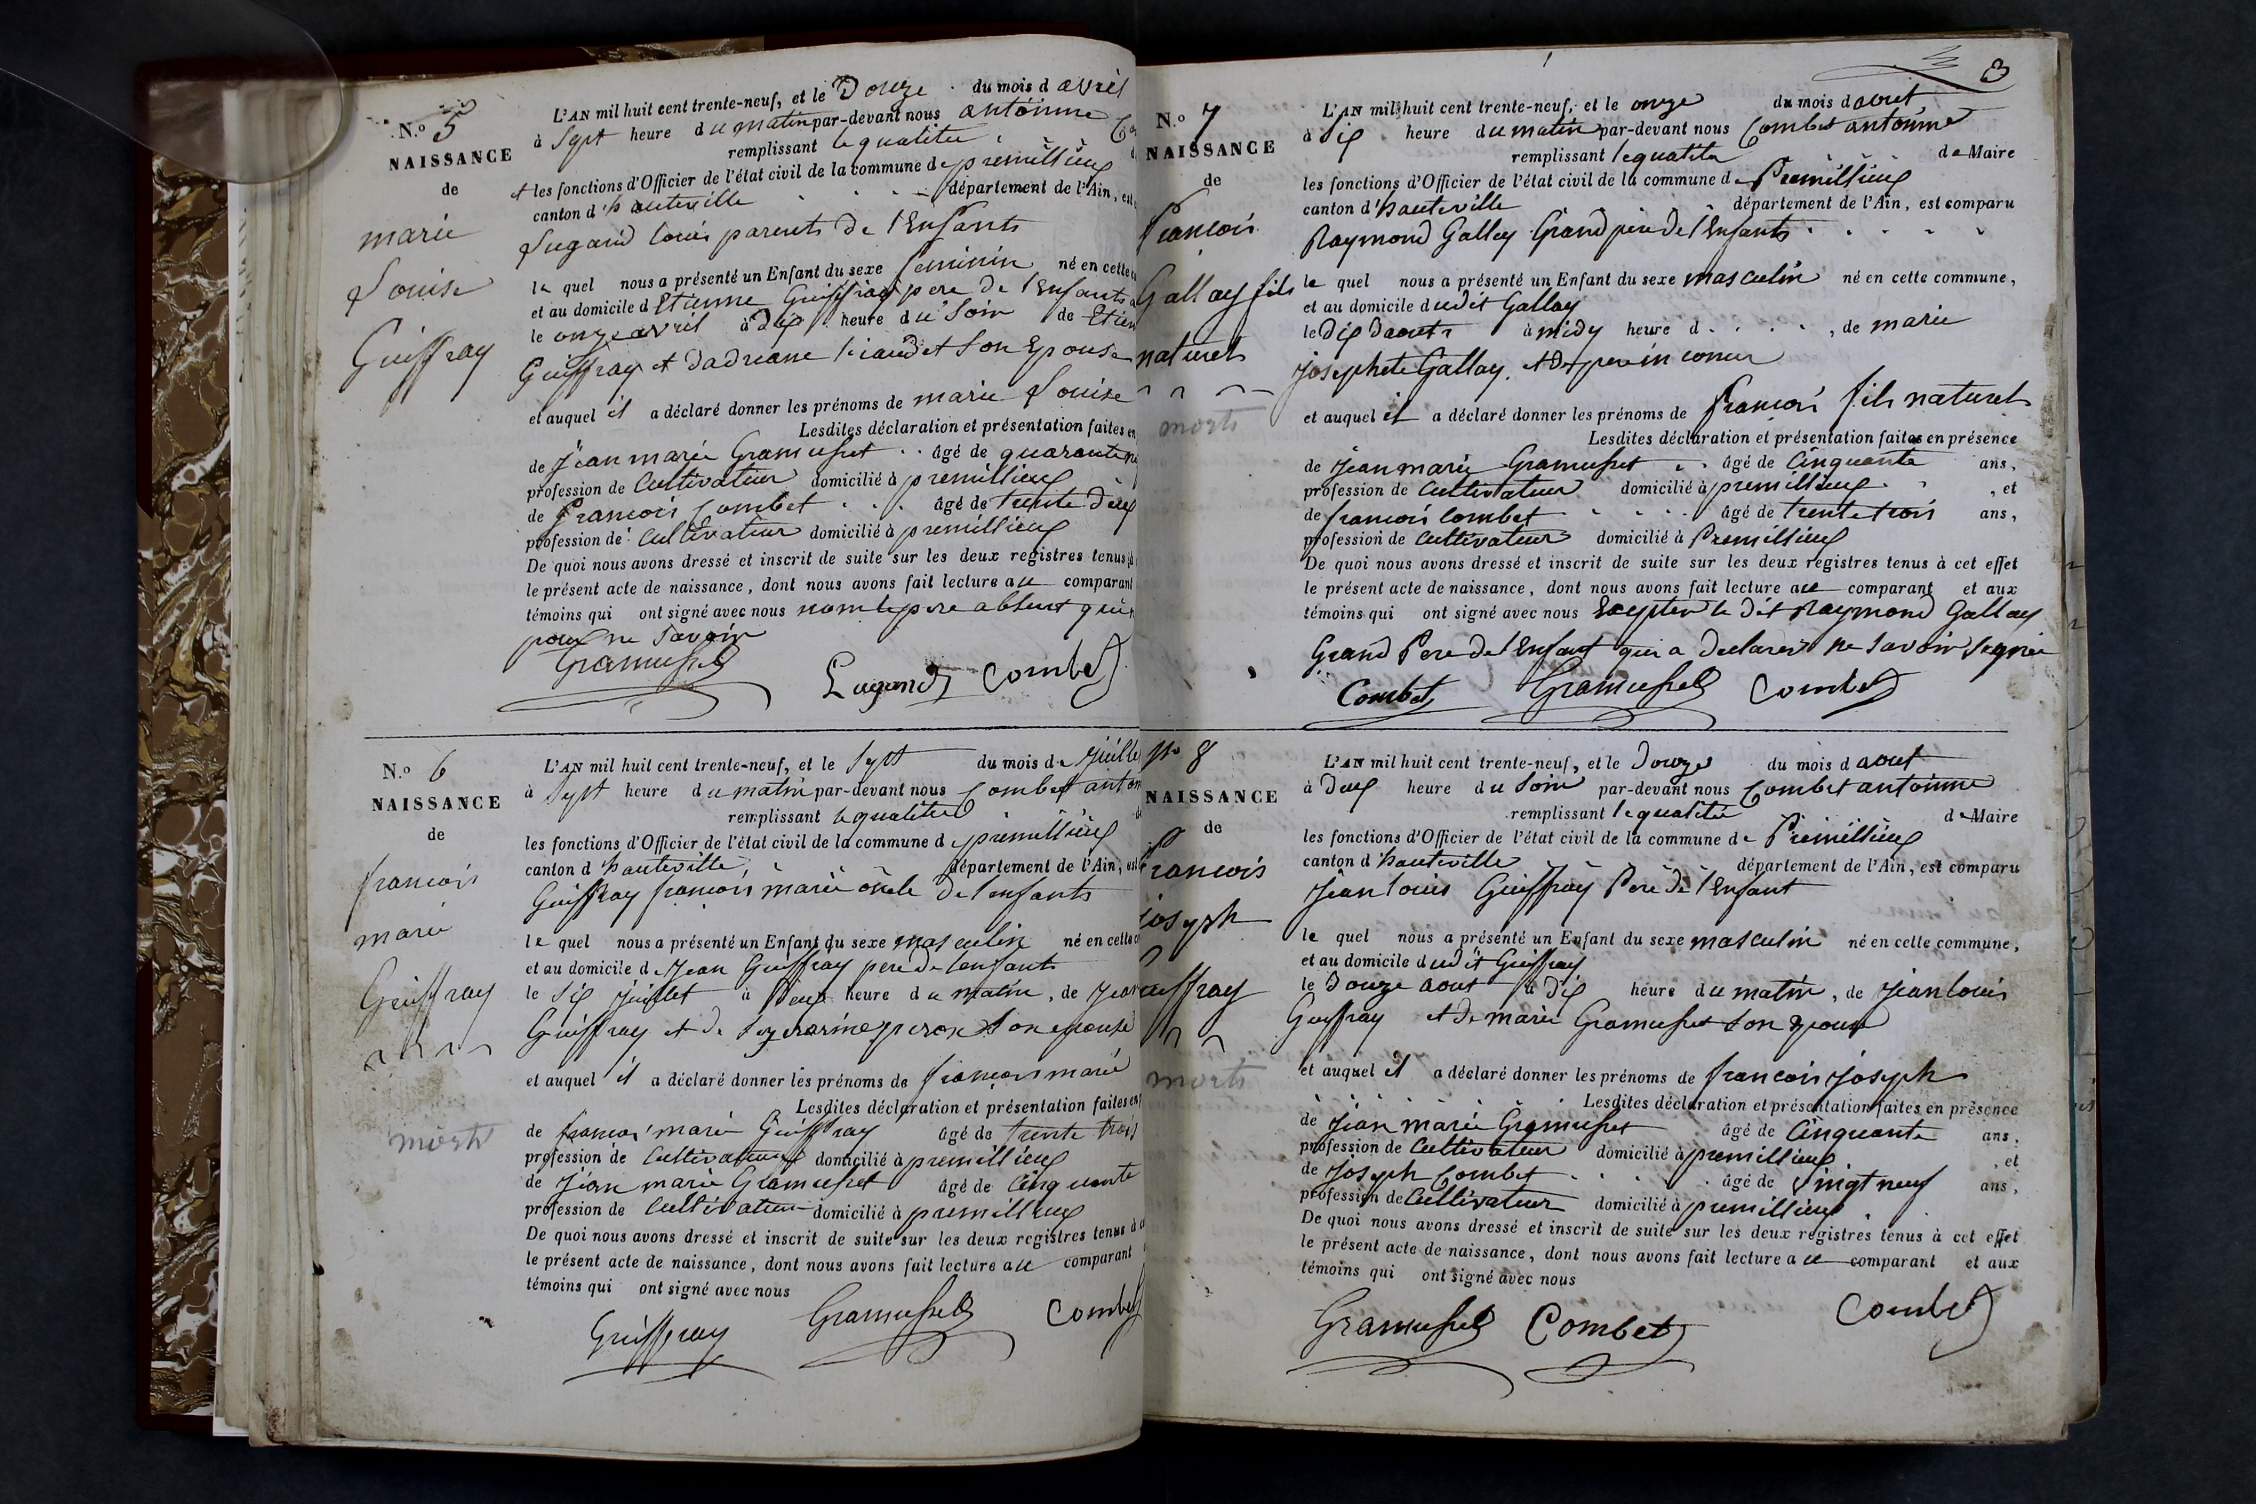 N.o 5
NAISSANCE
de
marie
Louise
Guiffray
L'AN mil huit cent trente-neuf, et le Douze du mois d avril
à Sept heure du matin par-devant nous antoinne
remplissant le qualitée
les fonctions d'Officier de l'état civil de la commune de premillieux
canton d'hauteville département de l'Ain, est
Lugand Louis parents de l'Enfants
le quel nous a présenté un Enfant du sexe feminin né en cette
et au domicile d Etienne Guiffray pere de l'Enfants
le onze avril à Dix heure du Soir de Etien
Guiffray et dadriane son Epouse
et auquel il a déclaré donner les prénoms de marie Louise
Lesdites déclaration et présentation faites en
de Jean marie Gramusset âgé de quarante
profession de Cultivateur domicilié à premillieux
de François Combet âgé de trente deux
profession de Cultivateur domicilié à premillieux
De quoi nous avons dressé et inscrit de suite sur les deux registres tenus
le présent acte de naissance, dont nous avons fait lecture au comparant
témoins qui ont signé avec nous non le pere absent
pour ne Savoir
Gramusset Lugand Combet
N.o 6
NAISSANCE
de
francois
marie
Guiffray
morts
L'AN mil huit cent trente-neuf, et le Sept du mois de Juille
à Sept heure du matin par-devant nous Combet anton
remplissant le qualitée
les fonctions d'Officier de l'état civil de la commune de premillieux
canton d'hauteville département de l'Ain, est
Guiffray francois marie oncle de l'enfants
le quel nous a présenté un Enfant du sexe masculin né en cette
et au domicile de Jean Guiffray pere de lenfants
le Six Juillet à Deux heure du matin, de Jean
Guiffray et de peron Son epouse
et auquel il a déclaré donner les prénoms de francois marie
Lesdites déclaration et présentation faites en
de francois marie Guiffray âgé de trente trois
profession de Cultivateur domicilié à premillieux
de Jean marie Gramuset âgé de Cinquante
profession de Cultivateur domicilié à premillieux
De quoi nous avons dressé et inscrit de suite sur les deux registres tenus à
le présent acte de naissance, dont nous avons fait lecture au comparant
témoins qui ont signé avec nous
Guiffray Gramusset Combet
3
N.o 7
NAISSANCE
de
francois
Gallay fils
naturels
morts
L'AN mil huit cent trente-neuf, et le onze du mois d aout
à Six heure du matin par-devant nous Combet antoinne
remplissant le qualitée de Maire
les fonctions d'Officier de l'état civil de la commune de Premillieux
canton d'hauteville département de l'Ain, est comparu
Raymond Gallay Grand pere de l'Enfants
le quel nous a présenté un Enfant du sexe masculin né en cette commune,
et au domicile dudit Gallay
le Dix daouts à midy heure d , de marie
Josephete Gallay et De pere in connu
et auquel il a déclaré donner les prénoms de francois fils naturels
Lesdites déclaration et présentation faites en présence
de Jean marie Gramusset âgé de Cinquante ans,
profession de Cultivateur domicilié à premillieux , et
de francois Combet âgé de trente trois ans,
profession de Cultivateur domicilié à Premillieux
De quoi nous avons dressé et inscrit de suite sur les deux registres tenus à cet effet
le présent acte de naissance, dont nous avons fait lecture au comparant et aux
témoins qui ont signé avec nous Excepter le dit Raymond Gallay
Grand Pere de l'Enfant qui a declarer ne Savoir Signer
Combet Gramusset Combet
No 8
NAISSANCE
de
francois
joseph
Guiffray
morts
L'AN mil huit cent trente-neuf, et le Douze du mois d aout
à Deux heure du Soir par-devant nous Combet antoinne
remplissant le qualitée de Maire
les fonctions d'Officier de l'état civil de la commune de Premillieux
canton d'hauteville département de l'Ain, est comparu
Jean louis Guiffray Pere de l'Enfant
le quel nous a présenté un Enfant du sexe masculin né en cette commune,
et au domicile dudit Guiffray
le Douze aout à Dix heure du matin, de Jean louis
Guiffray et de marie Gramusset Son Epouse
et auquel il a déclaré donner les prénoms de francois joseph
Lesdites déclaration et présentation faites en présence
de Jean marie Gramuset âgé de Cinquante ans,
profession de Cultivateur domicilié à premillieux , et
de Joseph Combet âgé de Vingt neuf ans,
profession de Cultivateur domicilié à premillieux
De quoi nous avons dressé et inscrit de suite sur les deux registres tenus à cet effet
le présent acte de naissance, dont nous avons fait lecture au comparant et aux
témoins qui ont signé avec nous
Gramusset Combet Combet